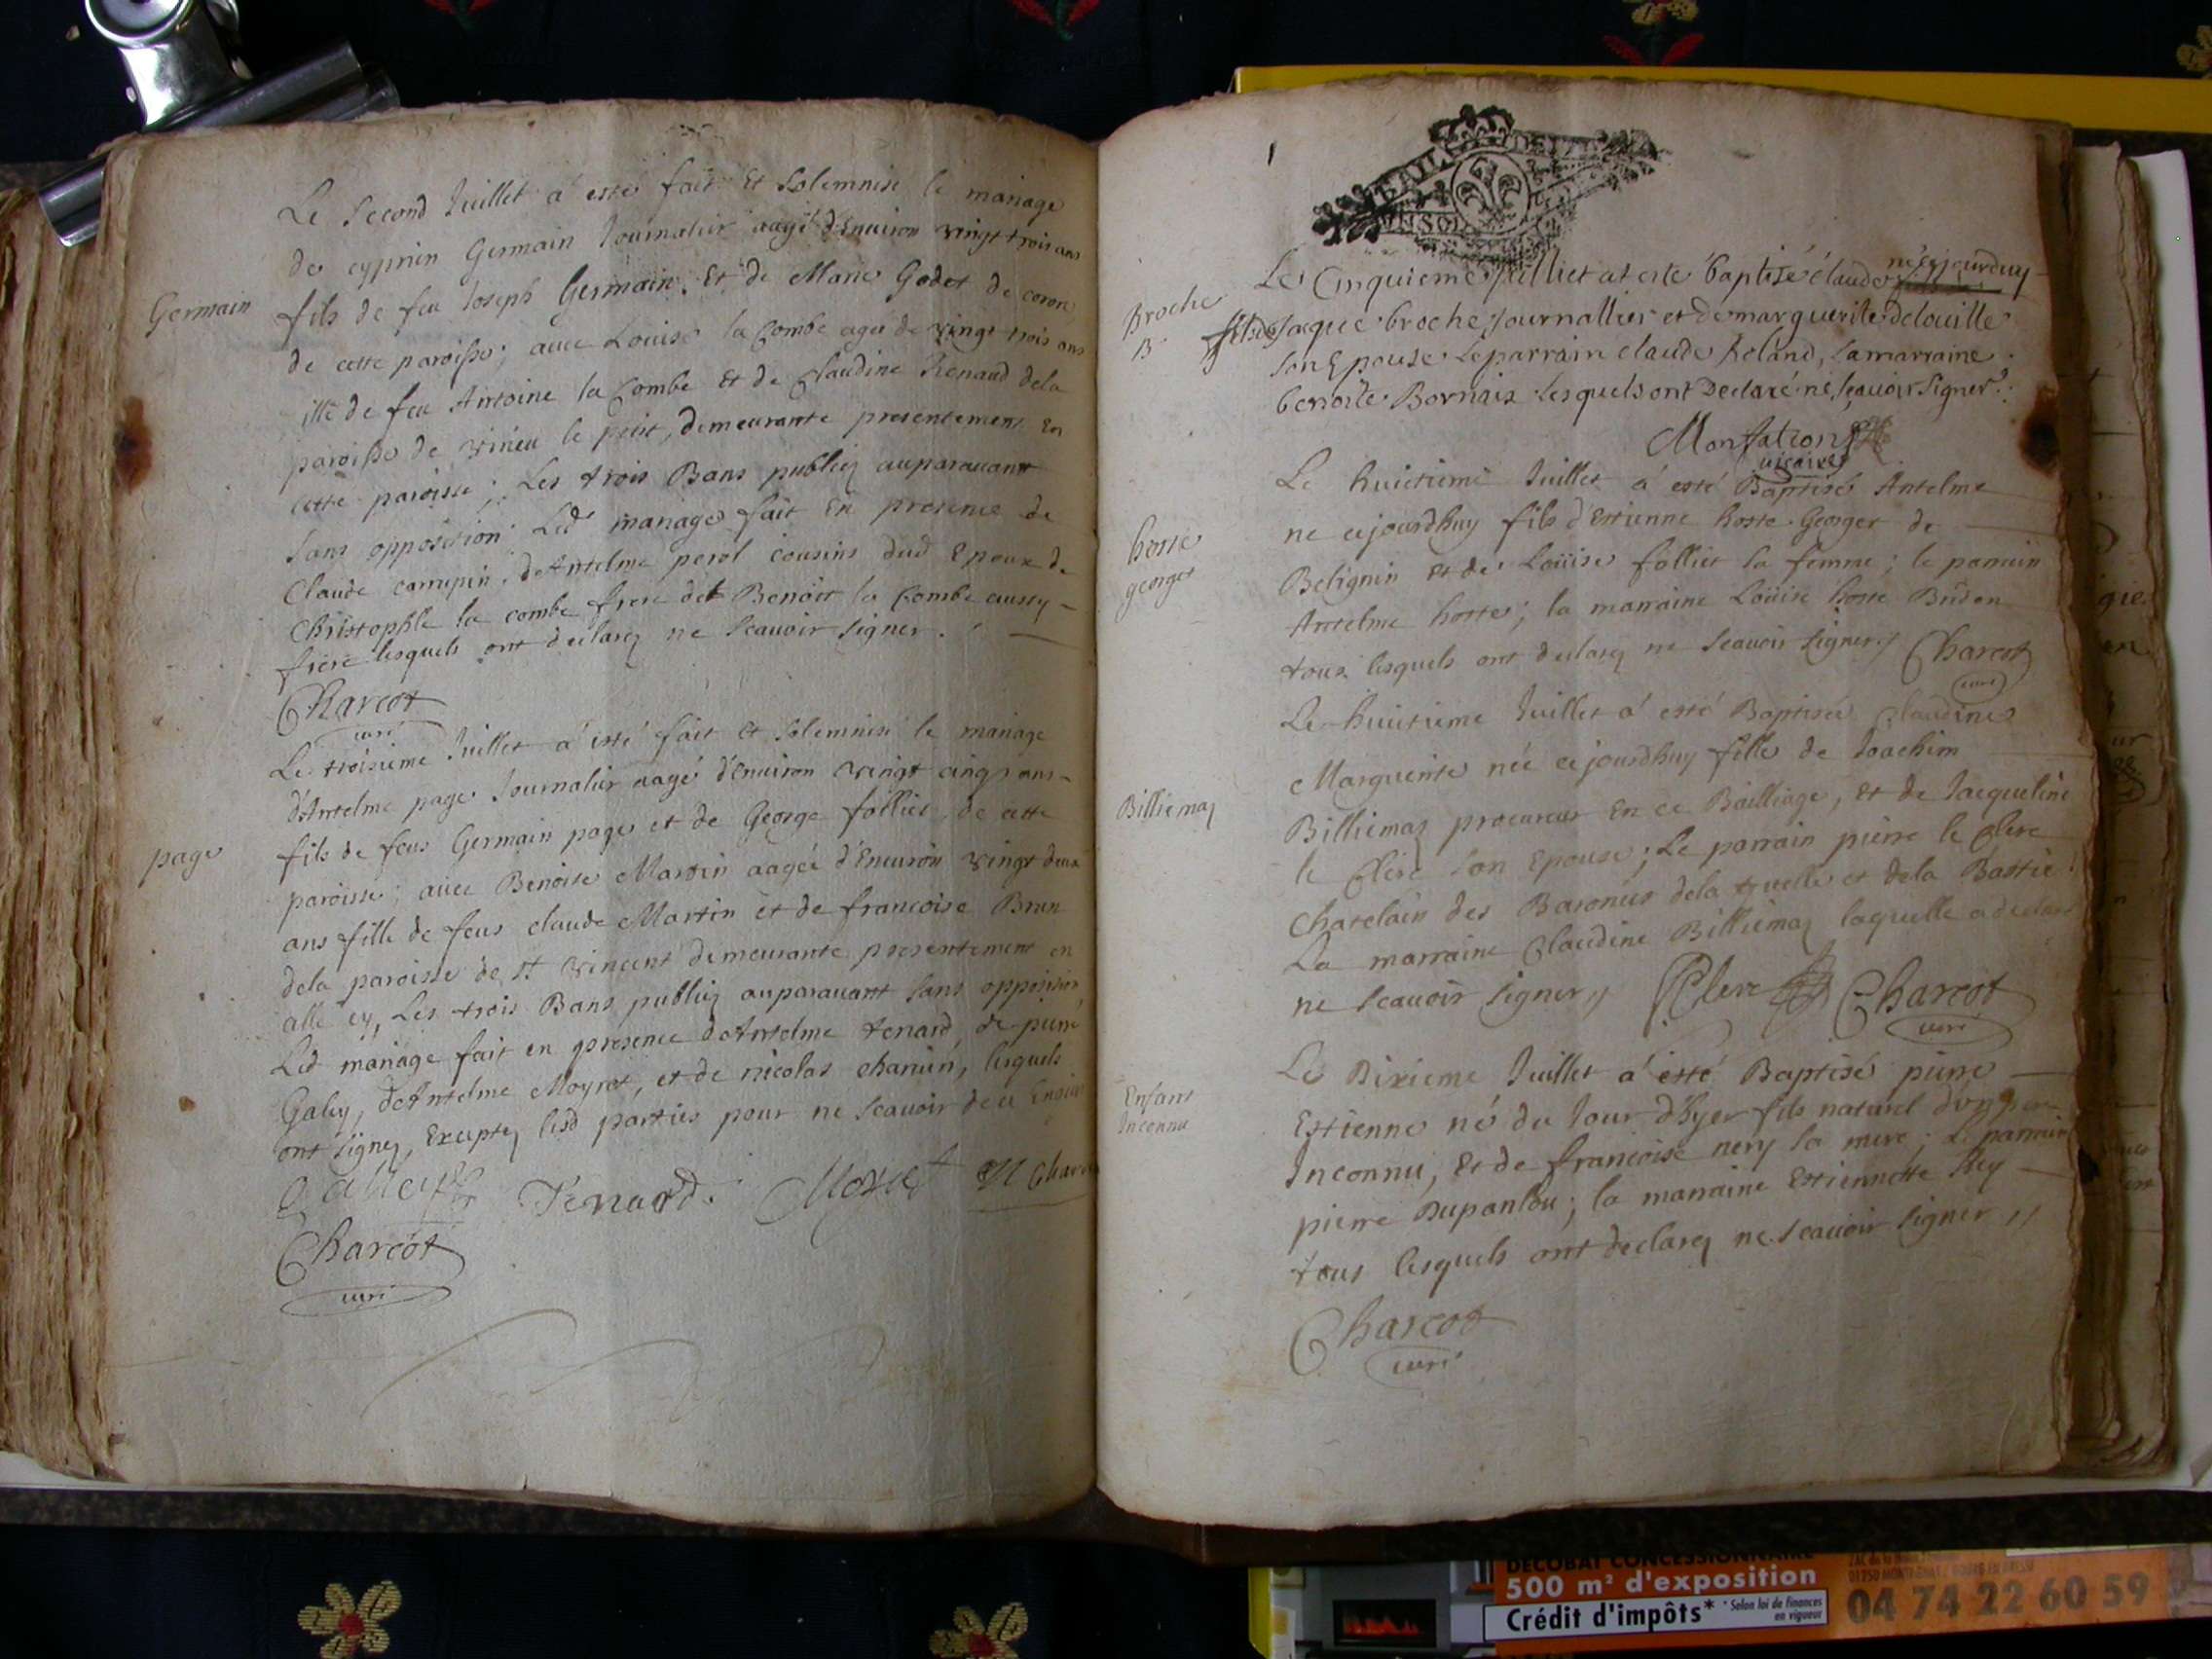 Le Second Juillet a esté fait Et Solemnisé le mariage
de cyprien Germain Journalier aagé d'Enuiron vingt trois ans
Germain
fils de feu Joseph Germain, Et de Marie Godet de coron
de cette paroisse; auec Louise la Combe agée de vingt trois ans
ille de feu Antoine la Combe Et de Claudine Renaud dela
paroisse de virieu le petit, demeurante presentement En
cette paroisse; Les trois Bans publiez auparauant
sans opposition Led mariage fait En presence de
Claude carrupin, d'Antelme perol cousins dud Epoux de
Christophle la combe frere de Benoist la Combe aussy
frere lesquels ont declarez ne Scauoir signer.
Charcot
curé
Le troisieme Juillet a esté fait et Solemnisé le mariage
d'Antelme page Journalier aagé d'Enuiron vingt cinq ans
page
fils de feus Germain page et de George follier, de cette
paroisse; auec Benoite Martin aagée d'Enuiron vingt deux
ans fille de feus claude Martin et de francoise Brun
dela paroisse de St vincent demeurante presentement en
alle cy, Les trois Bans publiez auparauant sans opposition
Led mariage fait en presence d'Antelme tenard, de pierre
Galley, d'Antelme Moyret, et de nicolas charuin, lesquels
ont signez, Exceptez lesd parties pour ne Scauoir de ce Enquis
Galley Tenard. Moyret N Charu
Charcot
curé
GEN DE
SOL
Le Cinquieme juilliet at esté baptisé claude né cejourduy
Broche
B
fils de Jaque broche journallier et de marguerite delouille
son Epouse Le parrain claude Roland, la marraine
benoite Bornaix lesquels ont Declaré ne sçauoir Signer.
Monfation
uicaire
Le huictieme Juillet a esté Baptisé Antelme
hoste
georges
ne cejourdhuy fils d'Estienne hoste Georges de
Belignin et de Loüise follier sa femme; le parrain
Antelme hoste; la marraine Loüise hoste Bridon
tous lesquels ont declarez ne Scauoir signer Charcot
curé
Le huictieme Juillet a esté Baptisée Claudine
Marguerite née cejourdhuy fille de Joachim
Billiemaz
Billiemaz procureur En ce Bailliage, Et de Jacqueline
le Clerc son Epouse; Le parrain pierre le Clerc
Chatelain des Baronies dela truelle et dela Bastie
La marraine Claudine Billiemaz laquelle a declaré
ne Scauoir signer Clerc Charcot
curé
Le Dixieme Juillet a esté Baptisé pierre
Enfant
Inconnu
Estienne né du Jour d'hyer fils naturel d'un pere
Inconnu, Et de francoise nery sa mere; Le parrain
pierre Dupanlou; la marraine Estiennette Rey
tous lesquels ont declarez ne Scauoir signer
Charcot
curé
DECOBAT CONCESSIONNAIRE
500 m² d'exposition
Crédit d'impôts* * Selon loi de finances
en vigueur
04 74 22 60 59